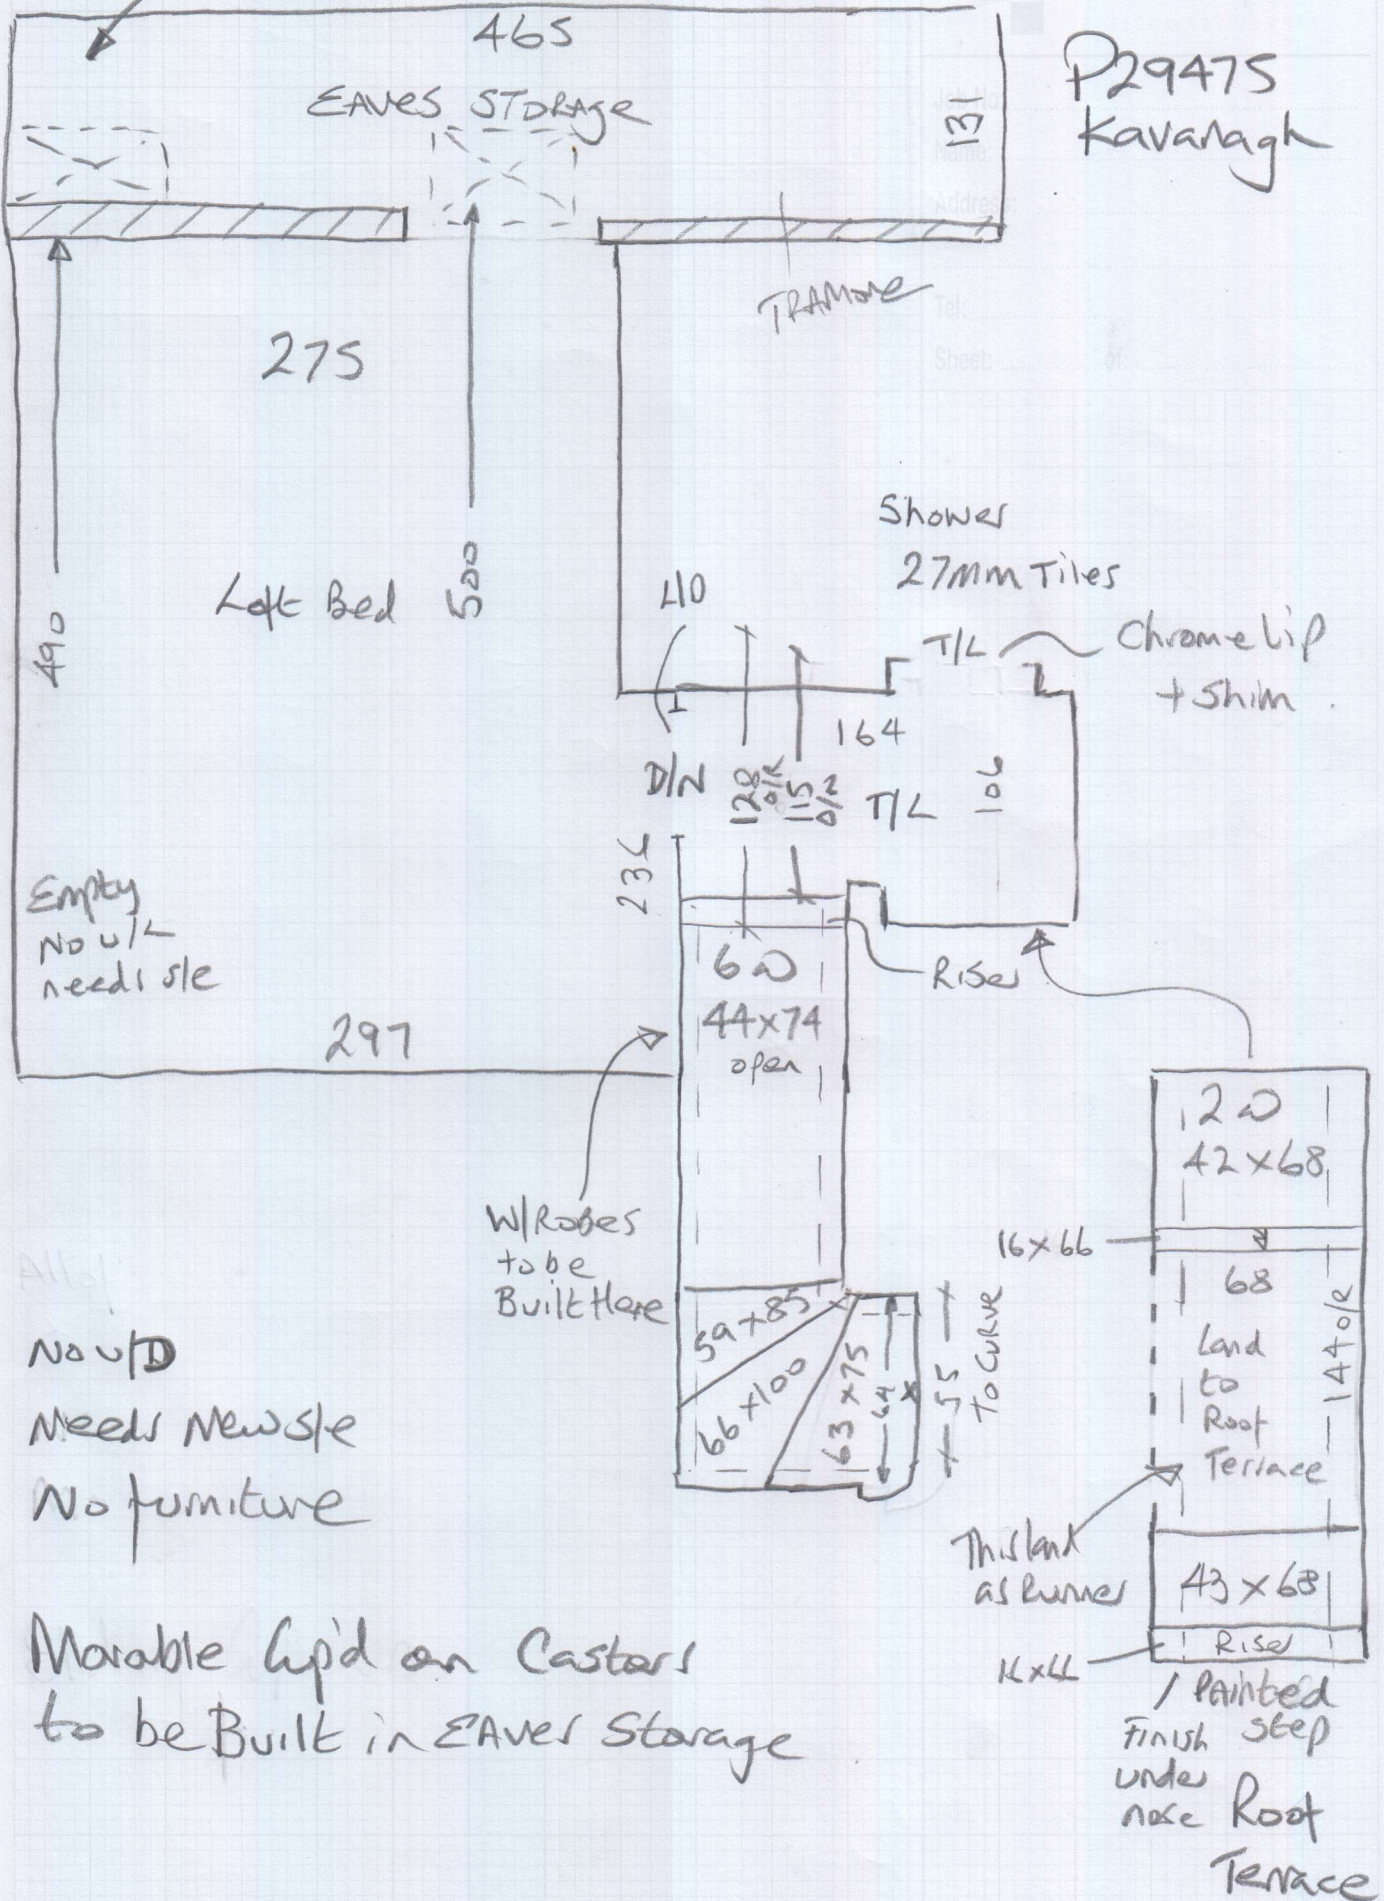 465
EAVES STORAGE
131
P29475
Kavanagh
Job No:
Name:
Address:
Tel:
Sheet: of:
TRAMORE
275
490
Loft Bed
500
Shower
27mm Tiles
T/L
Chrome Lip
+ Shim
110
164
D/N
128
O/R
115
O/R
T/L
106
236
Empty
No U/L
needs s/e
297
6 W
44x74
open
Riser
W/Robes
to be
Built Here
59 x 85
66 x 100
63 x 75
64 x
55
To CURVE
2 W
42 x 68
16 x 66
68
Land
to
Roof
Terrace
144 O/R
This land
as Runner
43 x 68
Riser
16 x 66
Painted
step
Finish
under
nose
Roof
Terrace
NO U/D
Needs New s/e
No furniture
Movable Cup'd on Castors
to be Built in EAVES Storage